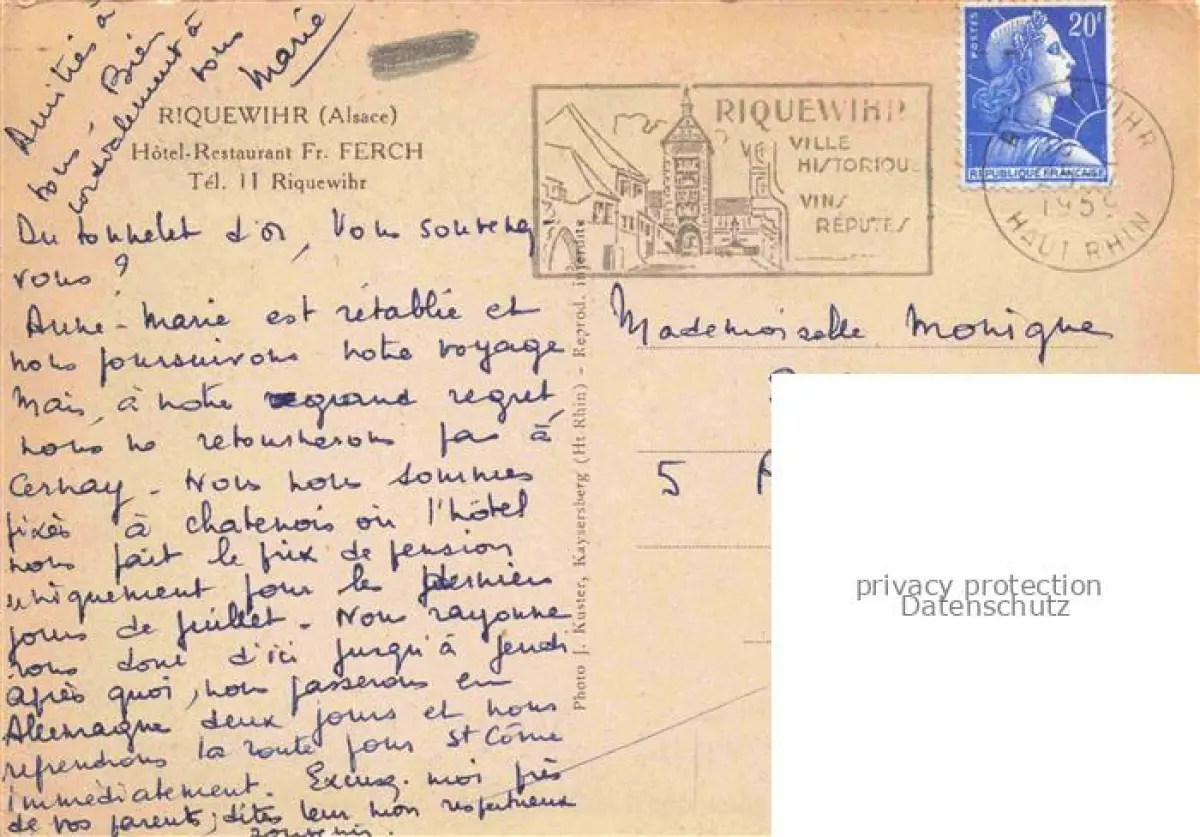 Amitiés à
tous, Bien
cordialement à
tous
Marie
RIQUEWIHR (Alsace)
Hôtel-Restaurant Fr. FERCH
Tél. 11 Riquewihr
Du tonnelet d'or, Vous souvenez-
vous ?
Anne-Marie est rétablie et
nous poursuivons notre voyage
Mais, à notre grand regret
nous ne retournerons pas à
Cernay - Nous nous sommes
fixés à chatenois où l'hôtel
nous fait le prix de pension
uniquement pour les derniers
jours de juillet - Nous rayonne
rons donc d'ici jusqu'à jeudi
après quoi, nous passerons en
Allemagne deux jours et nous
reprendrons la route pour St Côme
immédiatement. Excusez-moi près
de vos parents; dites leur mon respectueux
souvenir.
Photo J. Kuster, Kaysersberg (Ht Rhin) - Reprod. interdite
RIQUEWIHR
VILLE
HISTORIQUE
VINS
RÉPUTÉS
POSTES
20F
REPUBLIQUE FRANÇAISE
RIQUEWIHR
195
HAUT RHIN
Mademoiselle Monique
5
privacy protection
Datenschutz